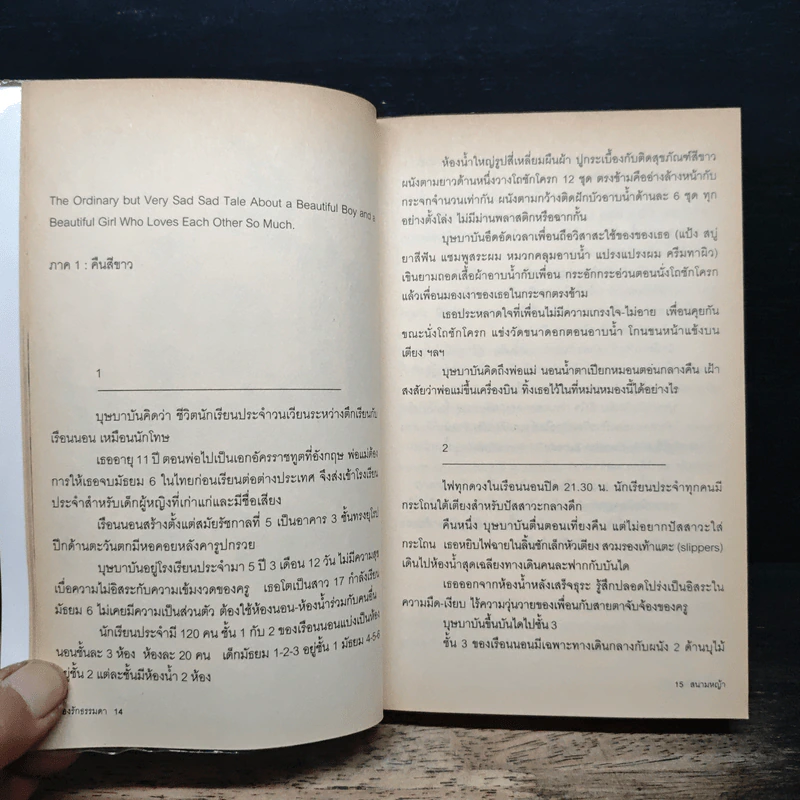 The Ordinary but Very Sad Sad Tale About a Beautiful Boy and a
Beautiful Girl Who Loves Each Other So Much.
ภาค 1 : คืนสีขาว
1
บุษบาบันคิดว่า ชีวิตนักเรียนประจำวนเวียนระหว่างตึกเรียนกับ
เรือนนอน เหมือนนักโทษ
เธออายุ 11 ปี ตอนพ่อไปเป็นเอกอัครราชทูตที่อังกฤษ พ่อแม่ต้อง
การให้เธอจบมัธยม 6 ในไทยก่อนเรียนต่อต่างประเทศ จึงส่งเข้าโรงเรียน
ประจำสำหรับเด็กผู้หญิงที่เก่าแก่และมีชื่อเสียง
เรือนนอนสร้างตั้งแต่สมัยรัชกาลที่ 5 เป็นอาคาร 3 ชั้นทรงยุโรป
ปีกด้านตะวันตกมีหอคอยหลังคารูปกรวย
บุษบาบันอยู่โรงเรียนประจำมา 5 ปี 3 เดือน 12 วัน ไม่มีความสุข
เบื่อความไม่อิสระกับความเข้มงวดของครู เธอโตเป็นสาว 17 กำลังเรียน
มัธยม 6 ไม่เคยมีความเป็นส่วนตัว ต้องใช้ห้องนอน-ห้องน้ำร่วมกับคนอื่น
นักเรียนประจำมี 120 คน ชั้น 1 กับ 2 ของเรือนนอนแบ่งเป็นห้อง
นอนชั้นละ 3 ห้อง ห้องละ 20 คน เด็กมัธยม 1-2-3 อยู่ชั้น 1 มัธยม 4-5-6
อยู่ชั้น 2 แต่ละชั้นมีห้องน้ำ 2 ห้อง
องรักธรรมดา 14
ห้องน้ำใหญ่รูปสี่เหลี่ยมผืนผ้า ปูกระเบื้องกับติดสุขภัณฑ์สีขาว
ผนังตามยาวด้านหนึ่งวางโถชักโครก 12 ชุด ตรงข้ามคืออ่างล้างหน้ากับ
กระจกจำนวนเท่ากัน ผนังตามกว้างติดฝักบัวอาบน้ำด้านละ 6 ชุด ทุก
อย่างตั้งโล่ง ไม่มีม่านพลาสติกหรือฉากกั้น
บุษบาบันอึดอัดเวลาเพื่อนถือวิสาสะใช้ของของเธอ (แป้ง สบู่
ยาสีฟัน แชมพูสระผม หมวกคลุมอาบน้ำ แปรงแปรงผม ครีมทาผิว)
เขินยามถอดเสื้อผ้าอาบน้ำกับเพื่อน กระอักกระอ่วนตอนนั่งโถชักโครก
แล้วเพื่อนมองเงาของเธอในกระจกตรงข้าม
เธอประหลาดใจที่เพื่อนไม่มีความเกรงใจ-ไม่อาย เพื่อนคุยกัน
ขณะนั่งโถชักโครก แข่งวัดขนาดอกตอนอาบน้ำ โกนขนหน้าแข้งบน
เตียง ฯลฯ
บุษบาบันคิดถึงพ่อแม่ นอนน้ำตาเปียกหมอนตอนกลางคืน เฝ้า
สงสัยว่าพ่อแม่ขึ้นเครื่องบิน ทิ้งเธอไว้ในที่หม่นหมองนี้ได้อย่างไร
2
ไฟทุกดวงในเรือนนอนปิด 21.30 น. นักเรียนประจำทุกคนมี
กระโถนใต้เตียงสำหรับปัสสาวะกลางดึก
คืนหนึ่ง บุษบาบันตื่นตอนเที่ยงคืน แต่ไม่อยากปัสสาวะใส่
กระโถน เธอหยิบไฟฉายในลิ้นชักเล็กหัวเตียง สวมรองเท้าแตะ (slippers)
เดินไปห้องน้ำสุดเฉลียงทางเดินคนละฟากกับบันได
เธอออกจากห้องน้ำหลังเสร็จธุระ รู้สึกปลอดโปร่งเป็นอิสระใน
ความมืด-เงียบ ไร้ความวุ่นวายของเพื่อนกับสายตาจับจ้องของครู
บุษบาบันขึ้นบันไดไปชั้น 3
ชั้น 3 ของเรือนนอนมีเฉพาะทางเดินกลางกับผนัง 2 ด้านบุไม้
15 สนามหญ้า